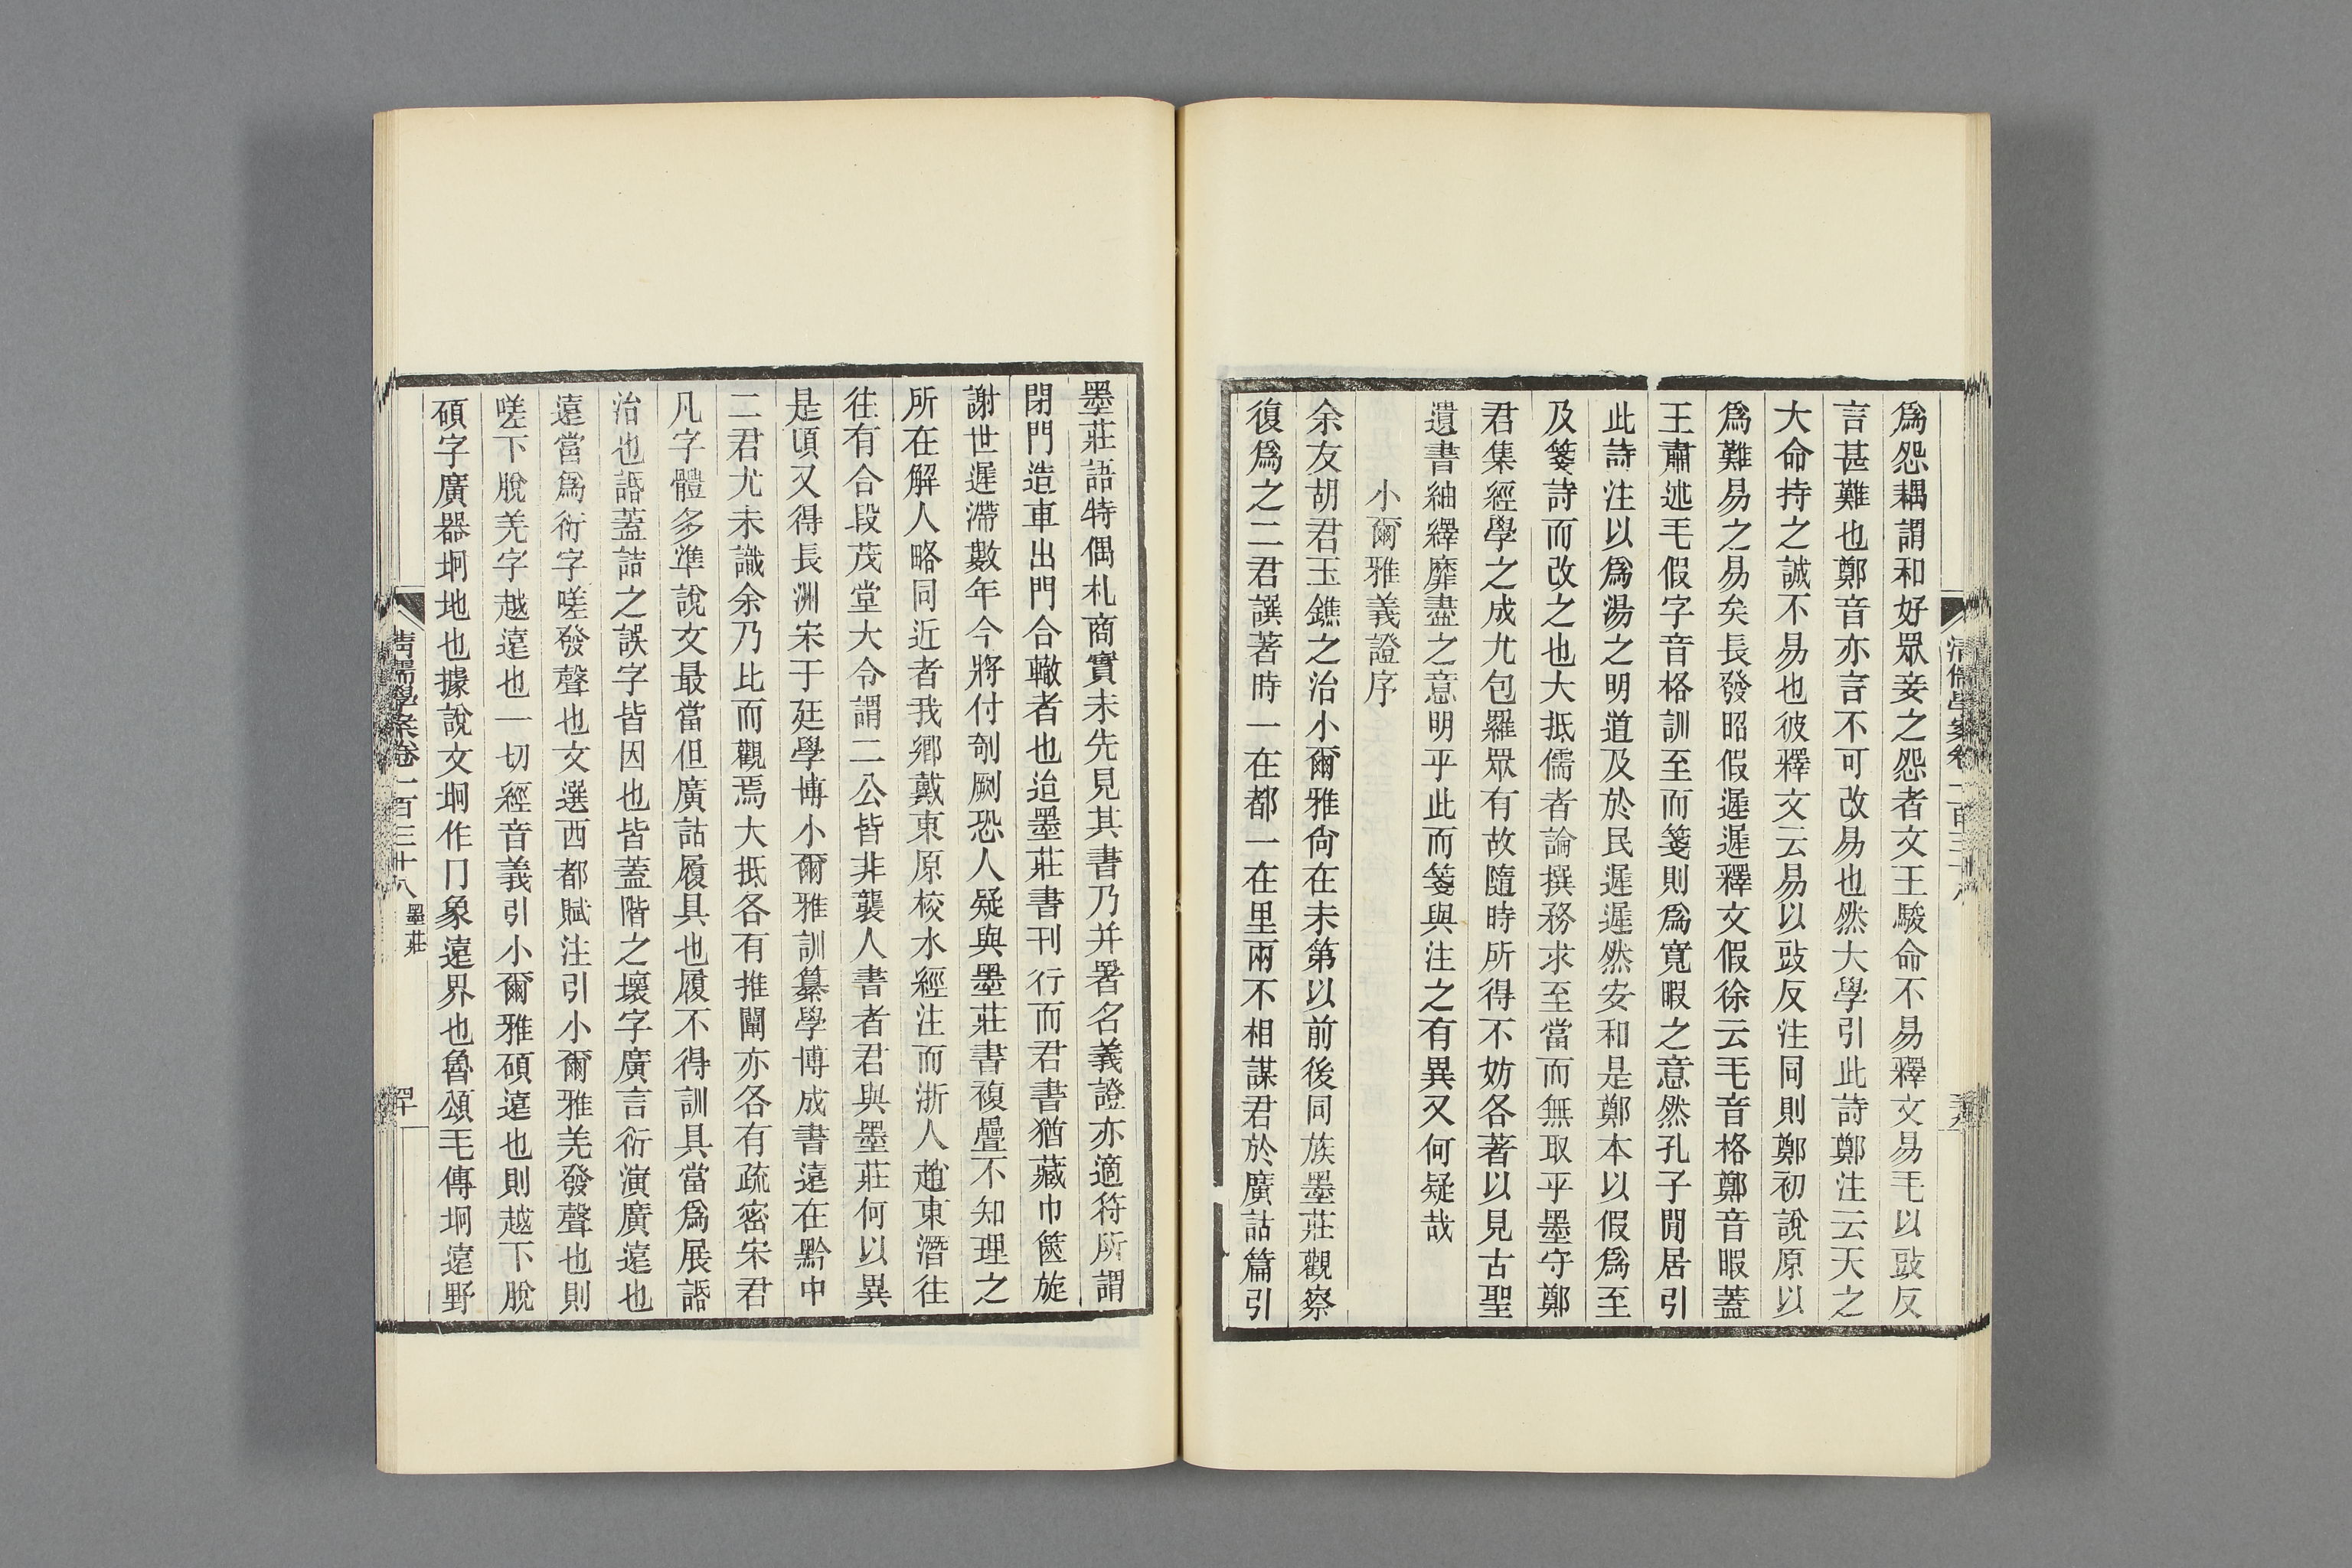 爲怨耦謂和好眾妾之怨者文王駿命不易釋文易毛以豉反
言甚難也鄭音亦言不可改易也然大學引此詩鄭注云天之
大命持之誠不易也彼釋文云易以豉反注同則鄭初說原以
爲難易之易矣長發昭假遲遲釋文假徐云毛音格鄭音暇蓋
王肅述毛假字音格訓至而箋則爲寬暇之意然孔子閒居引
此詩注以爲湯之明道及於民遲遲然安和是鄭本以假爲至
及箋詩而改之也大抵儒者論撰務求至當而無取乎墨守鄭
君集經學之成尤包羅眾有故隨時所得不妨各著以見古聖
遺書紬繹靡盡之意明乎此而箋與注之有異又何疑哉
小爾雅義證序
余友胡君玉鐎之治小爾雅尙在未第以前後同族墨莊觀察
復爲之二君譔著時一在都一在里兩不相謀君於廣詁篇引
清儒學案卷一百三十八
三九
墨莊語特偶札商實未先見其書乃并署名義證亦適符所謂
閉門造車出門合轍者也迨墨莊書刊行而君書猶藏巾篋旋
謝世遲滯數年今將付剞劂恐人疑與墨莊書複疊不知理之
所在解人略同近者我鄉戴東原校水經注而浙人趙東潛往
往有合段茂堂大令謂二公皆非襲人書者君與墨莊何以異
是頃又得長洲宋于廷學博小爾雅訓纂學博成書遠在黔中
二君尤未識余乃比而觀焉大抵各有推闡亦各有疏密宋君
凡字體多準說文最當但廣詁履具也履不得訓具當爲展誻
治也誻蓋詰之誤字皆因也皆蓋階之壞字廣言衍演廣遠也
遠當爲衍字嗟發聲也文選西都賦注引小爾雅羌發聲也則
嗟下脫羌字越遠也一切經音義引小爾雅碩遠也則越下脫
碩字廣器坰地也據說文坰作冂象遠界也魯頌毛傳坰遠野
清儒學案卷一百三十八 墨莊
四十